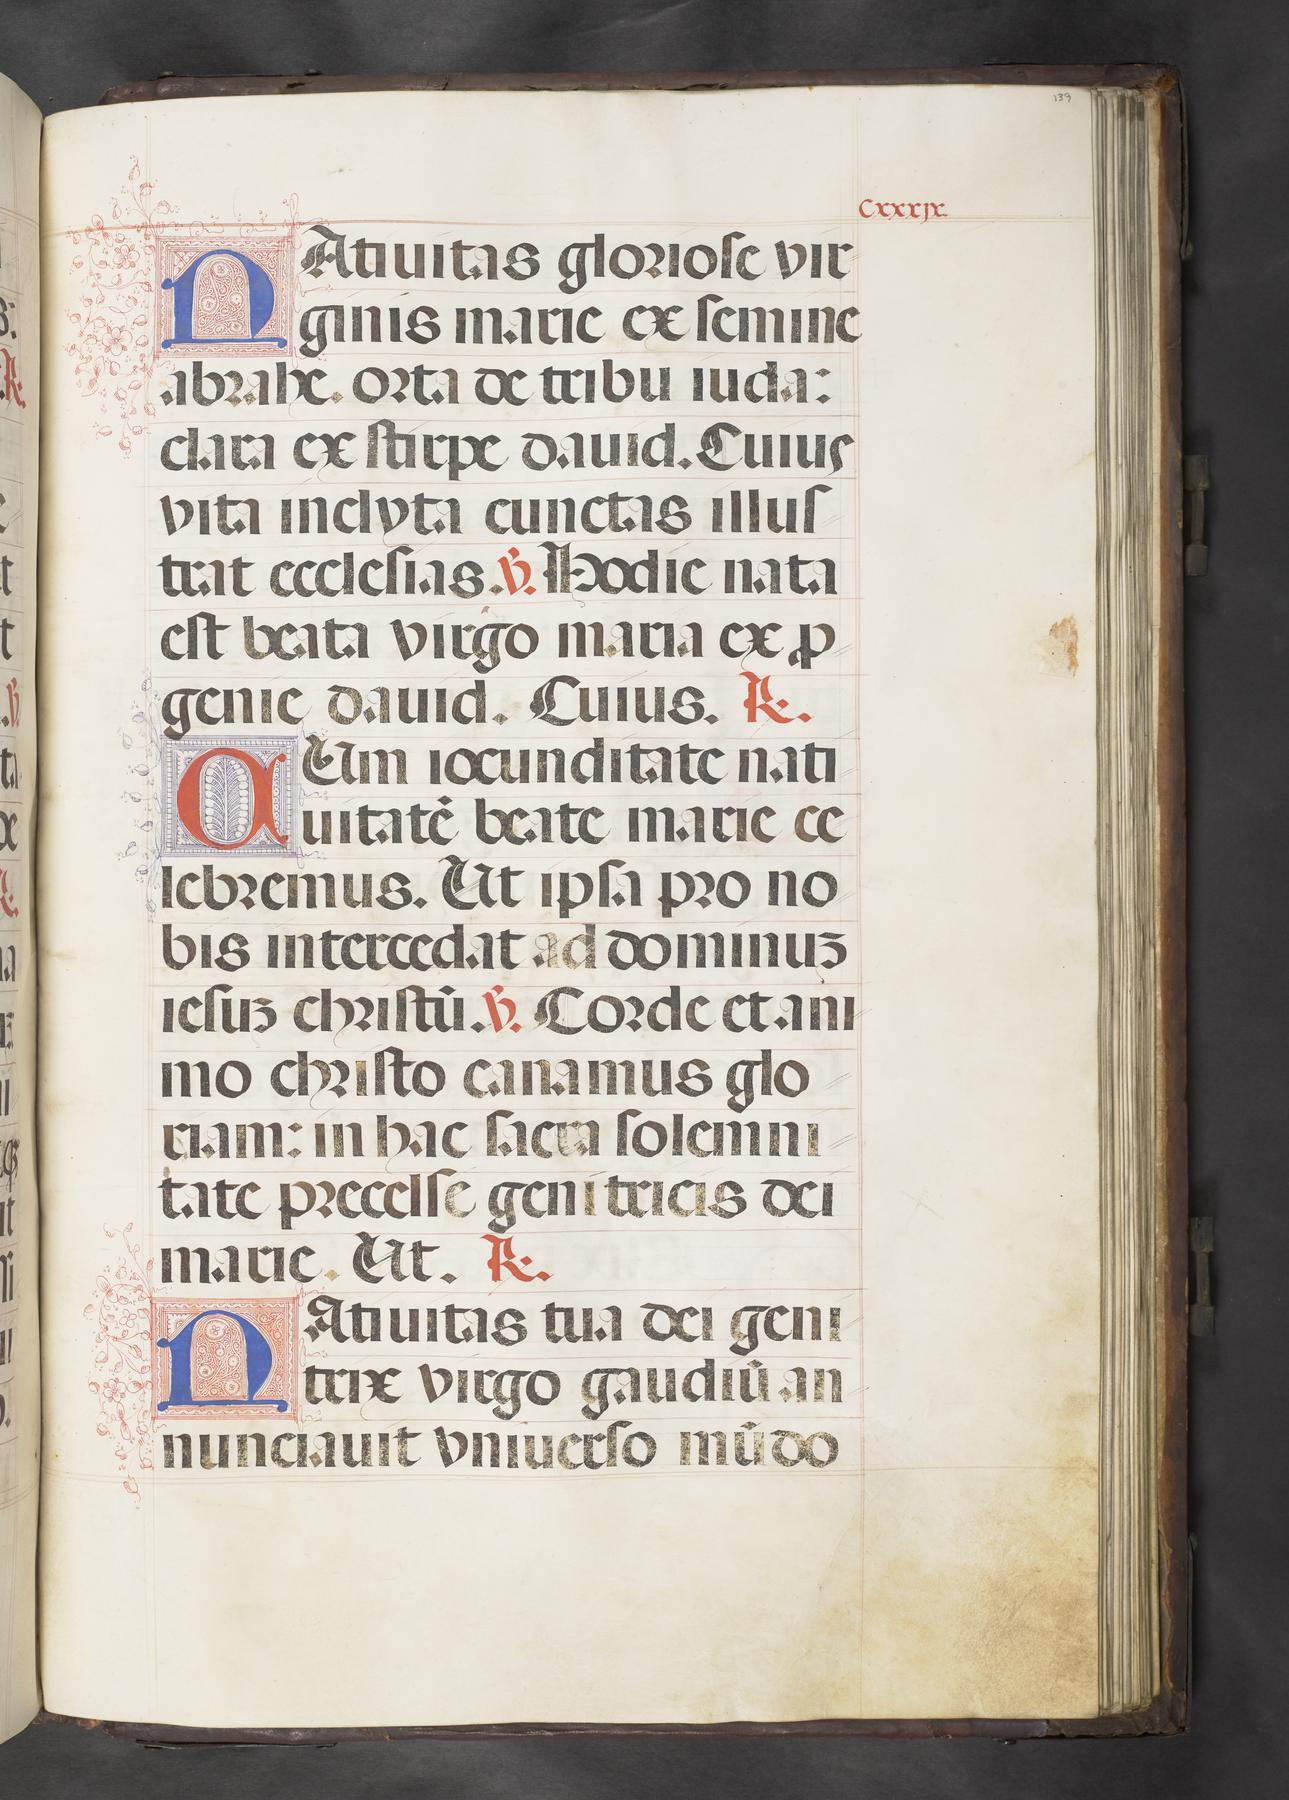 139
Cxxxjx.
NAtiuitas gloriose vir
ginis marie ex semine
abrahe. orta de tribu iuda:
clara ex stirpe dauid. Cuius
vita inclyta cunctas illus
trat ecclesias. ℣. Hodie nata
est beata virgo maria ex ꝓ
genie dauid. Cuius. ℟.
CUm iocunditate nati
uitatē beate marie ce
lebremus. Ut ipsa pro no
bis intercedat ad dominuꝫ
iesuꝫ christū. ℣. Corde et ani
mo christo canamus glo
riam: in hac sacra solemni
tate precelse genitricis dei
marie. Ut. ℟.
NAtiuitas tua dei geni
trix virgo gaudiū an
nunciauit vniuerso mūdo